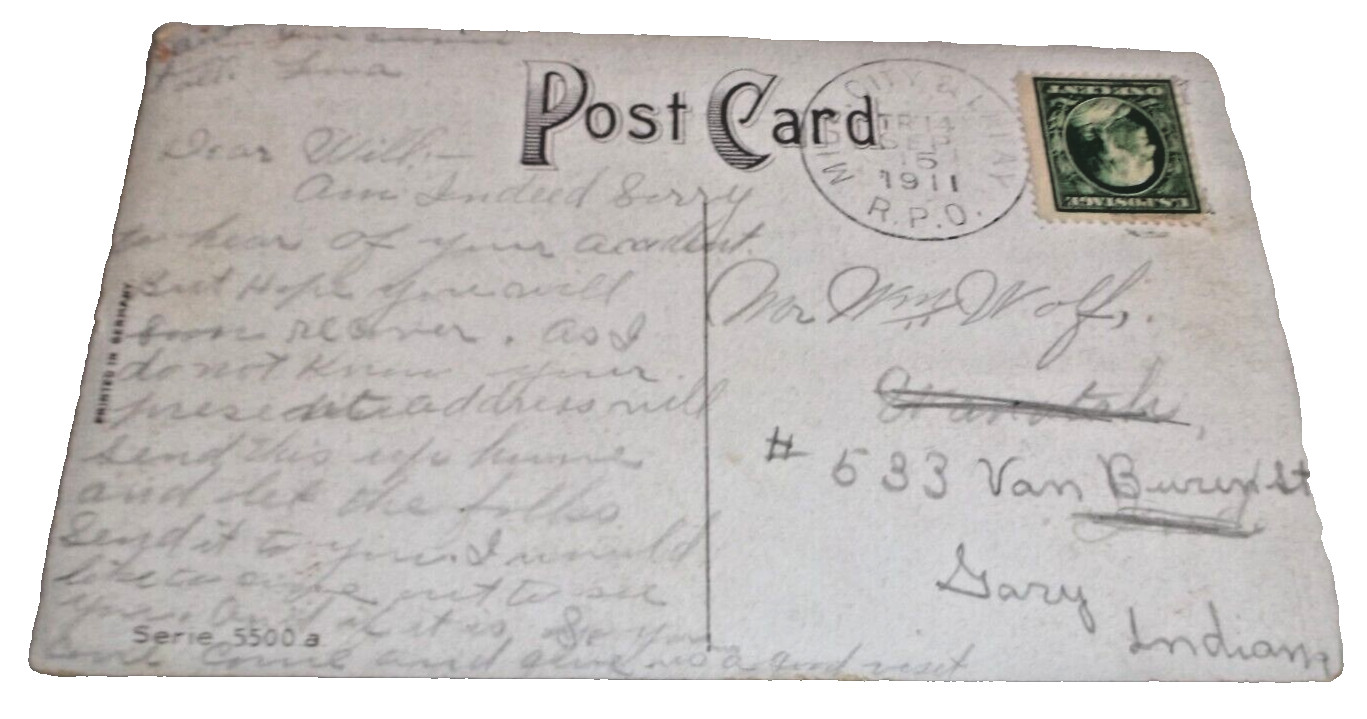 Post Card
Dear Will:—
Am Indeed Sorry
to hear of your accident.
But Hope you will
soon recover. As I
do not know your
present address will
send this up home
and let the folks
Send it to you. I would
like to come out to see
you
come and give us a good visit
Serie 5500 a
PRINTED IN GERMANY
CITY &
TR 14
SEP
15
1911
R.P.O.
ONE CENT
U.S. POSTAGE
Mr Wm Wolf,
# 533 Van Buren St
Gary
Indiana